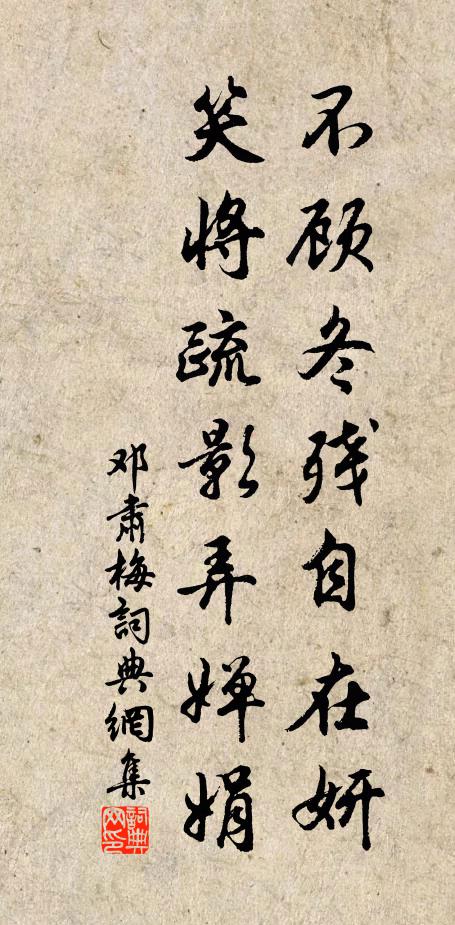 不顾冬残自在妍
笑将疏影弄婵娟
邓肃梅詞典網集
詞典网印